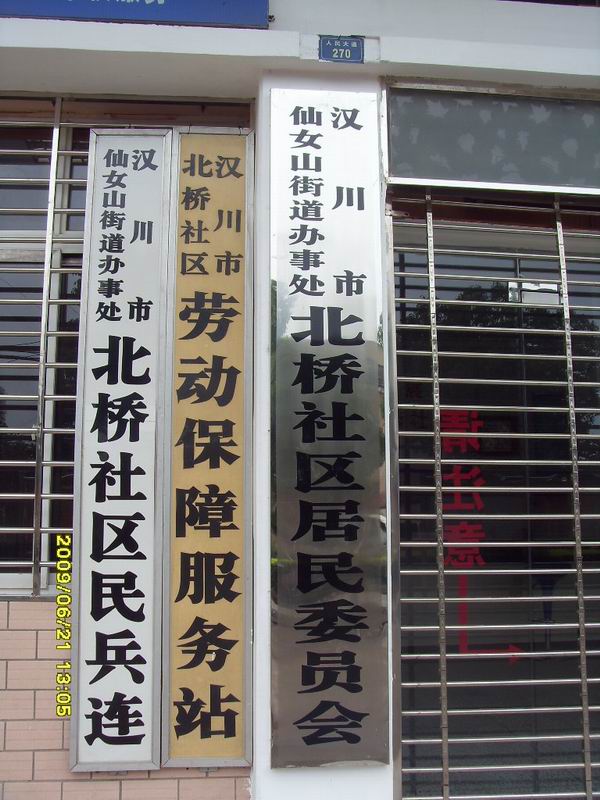 人民大道
270
汉川市
仙女山街道办事处
北桥社区居民委员会
汉川市
北桥社区
劳动保障服务站
汉川市
仙女山街道办事处
北桥社区民兵连
请注意
2009/06/21 13:05